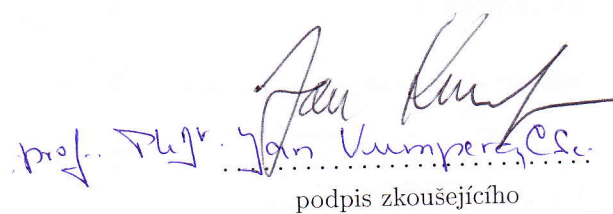 Jan
prof. PhDr. Jan Kumpera, CSc.
podpis zkoušejícího